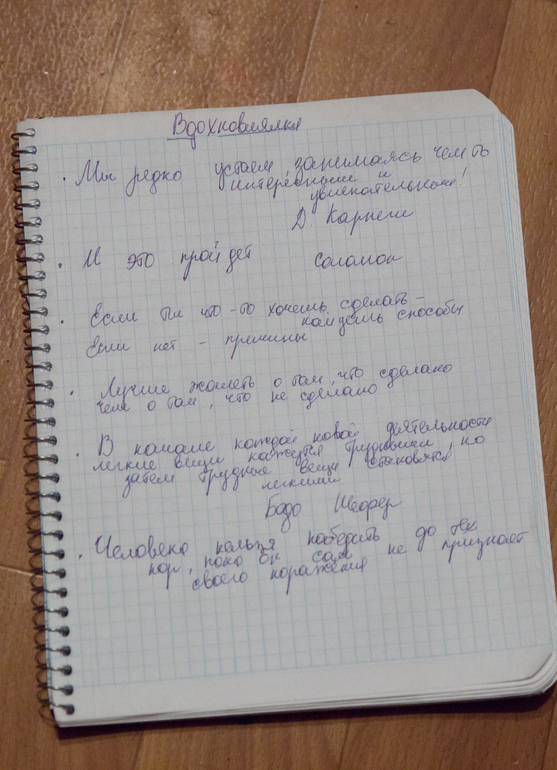 Вдохновлялки
· Мы редко устаем, занимаясь чем-то
интересным и
увлекательным!
Д. Карнеги
· И это пройдет Соломон
· Если ты что-то хочешь сделать –
найдешь способы
Если нет – причины
· Лучше жалеть о том, что сделано
чем о том, что не сделано
· В начале каждой новой деятельности
легкие вещи кажутся трудными, но
затем трудные вещи становятся
легкими
Бодо Шефер
· Человека нельзя победить до тех
пор, пока он сам не признает
своего поражения